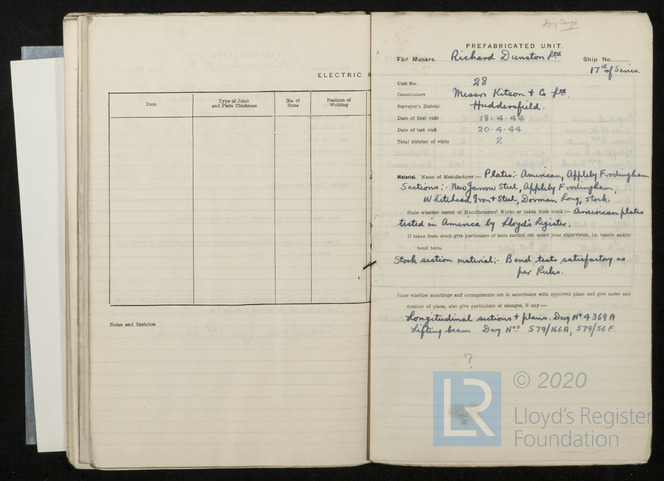 ELECTRIC A
Item
Type of Joint and Plate Thickness
No. of Runs
Position of Welding
Notes and Sketches
Dry Cargo
PREFABRICATED UNIT.
For Messrs. Richard Dunston Ltd Ship No.
17th of Series.
Unit No. 28
Constructors Messrs Kitson & Co Ltd.
Surveyor's District Huddersfield.
Date of first visit 18.4.44
Date of last visit 20.4.44
Total number of visits 2
Material. Name of Manufacturer:— Plates:- American, Appleby Frodingham
Sections:- New Jarrow Steel, Appleby Frodingham,
Whitehead Iron & Steel, Dorman Long, Stock.
State whether tested at Manufacturers' Works or taken from stock:— American plates
tested in America by Lloyd's Register.
If taken from stock give particulars of tests carried out under your supervision, i.e. tensile and/or
bend tests.
Stock section material:- Bend tests satisfactory as
per Rules.
State whether scantlings and arrangements are in accordance with approved plans and give name and
number of plans, also give particulars of changes, if any:—
Longitudinal sections & plans. Dwg No 4369A
Lifting beam Dwg Nos 579/166A, 579/56F
?
LR
© 2020
Lloyd's Register
Foundation